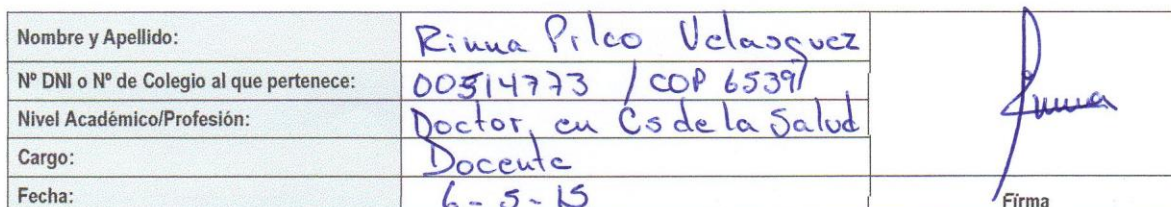 Nombre y Apellido: Rinna Pilco Velasquez
Nº DNI o Nº de Colegio al que pertenece: 00514773 / COP 6539
Nivel Académico/Profesión: Doctor, en Cs de la Salud
Cargo: Docente
Fecha: 6-5-15
Firma